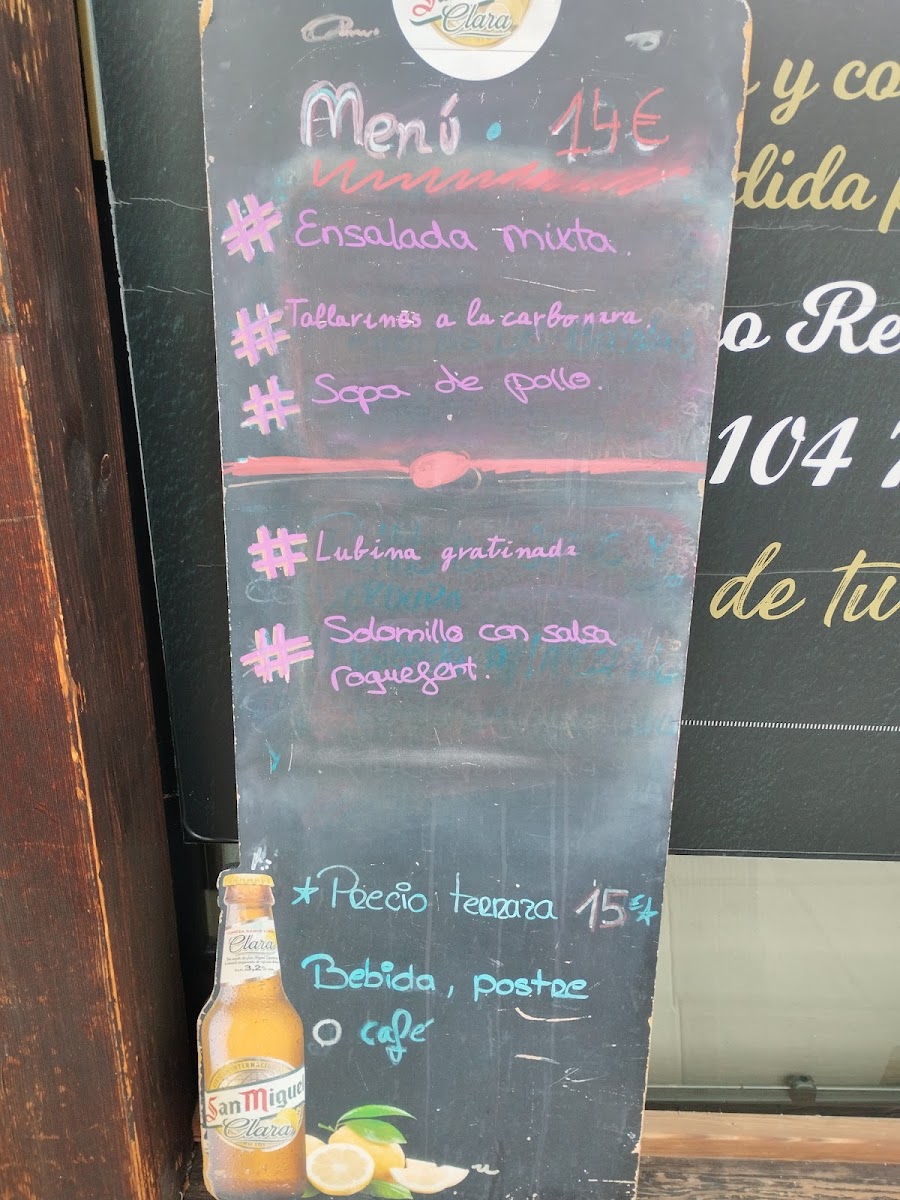 Clara
Menú. 14€
# Ensalada mixta
# Tallarines a la carbonara
# Sopa de pollo.
# Lubina gratinada
# Solomillo con salsa
roquefort.
* Precio terraza 15€*
Bebida, postre
O café
Clara
3,2
San Miguel
Clara
y co
dida p
o Re
104
de tu